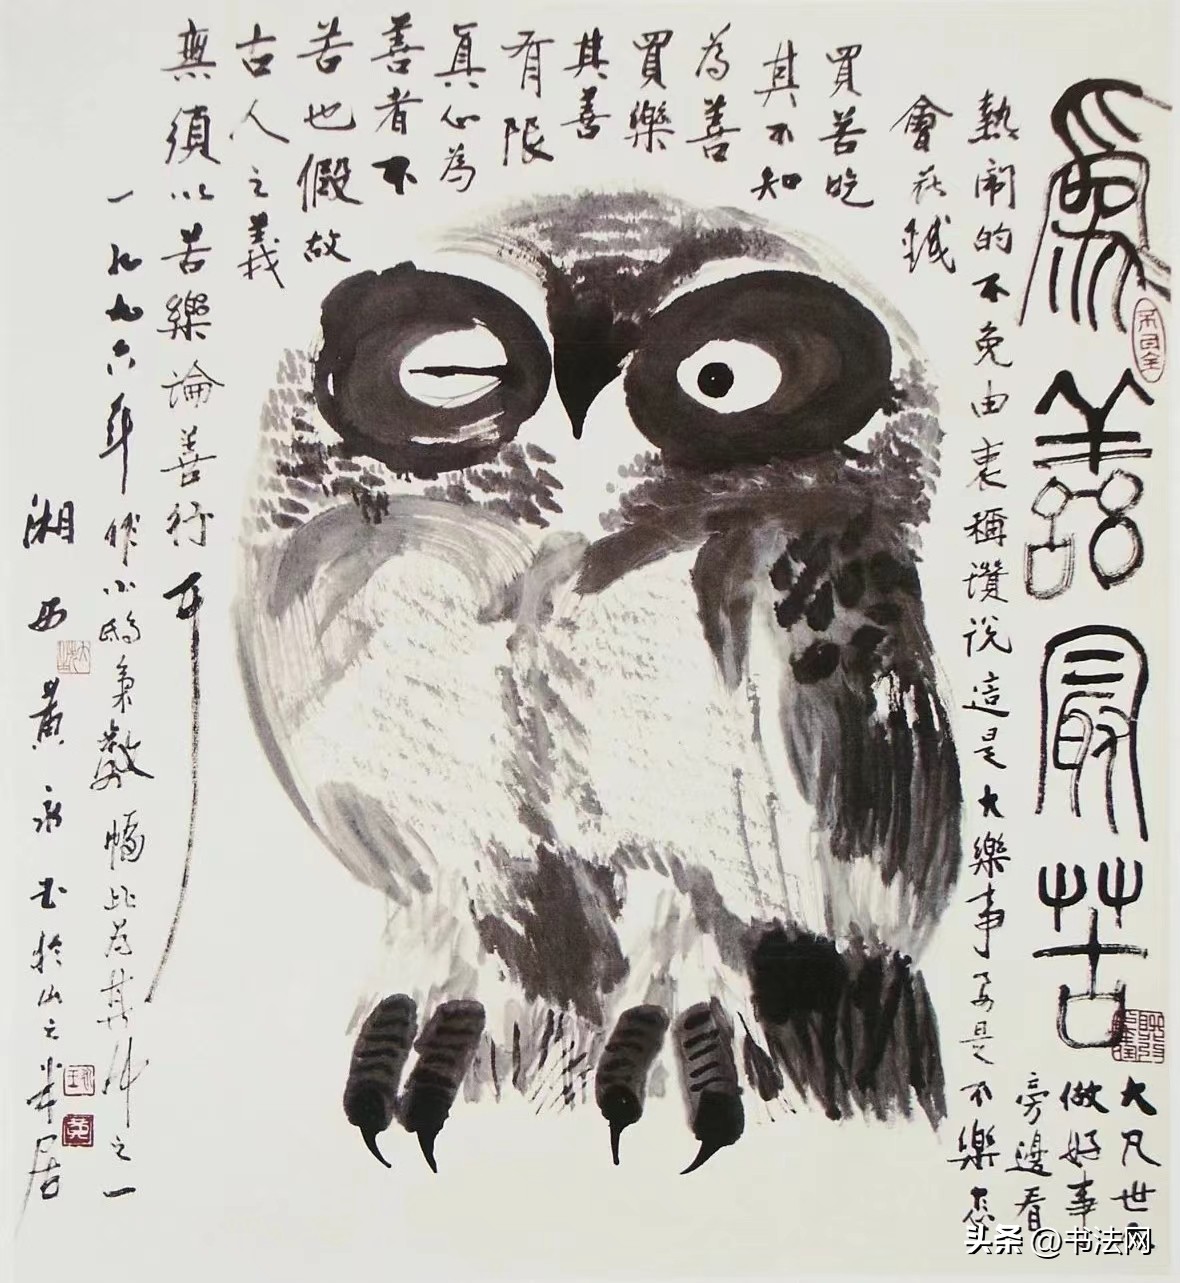 為善最苦
大凡世
做好事
旁邊看
熱鬧的不免由衷稱讚說這是大樂事要是不樂怎
會花錢
買苦吃
其不知
為善
買樂
其善
有限
真心為
善者不
苦也假故
古人之義
無須以苦樂論善行耳
一九九六年作小鴟梟數幅此為其中之一
湘西黃永玉於山之半居
头条 @书法网